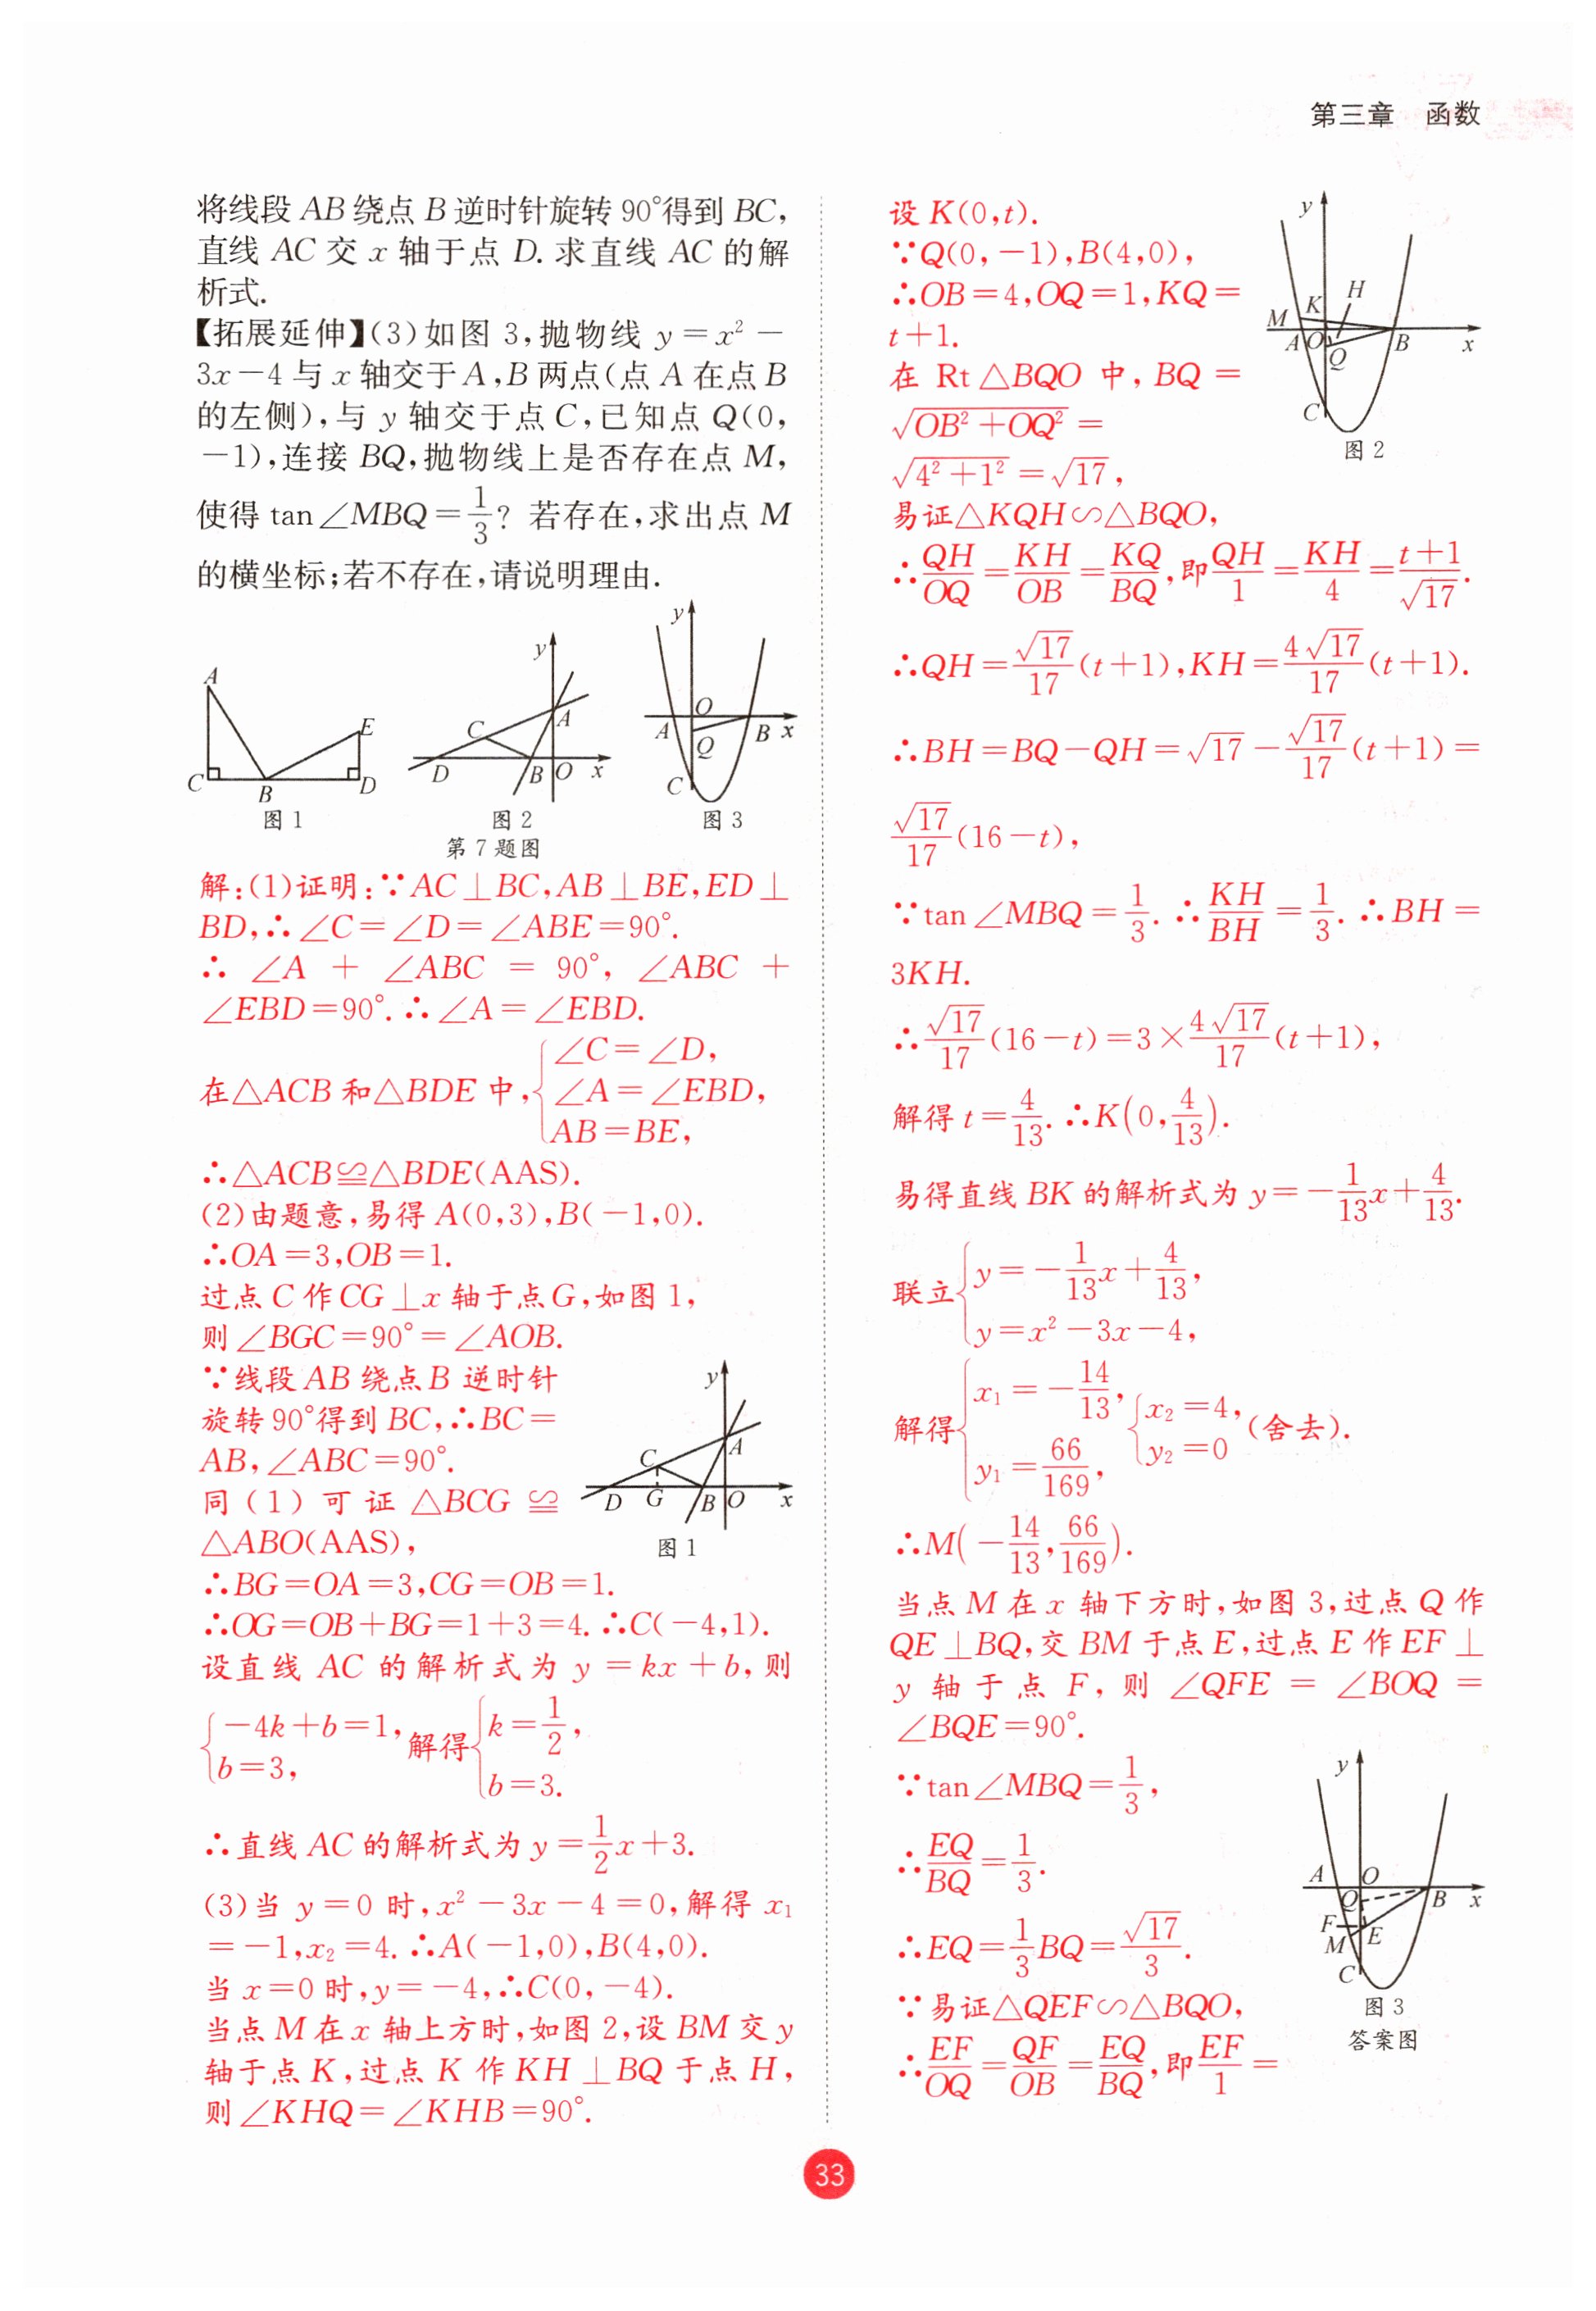 第三章 函数
将线段 AB 绕点 B 逆时针旋转 90°得到 BC,
直线 AC 交 x 轴于点 D. 求直线 AC 的解
析式.
【拓展延伸】(3)如图 3,抛物线 y=x²-
3x-4 与 x 轴交于 A,B 两点(点 A 在点 B
的左侧),与 y 轴交于点 C,已知点 Q(0,
-1),连接 BQ,抛物线上是否存在点 M,
使得 tan∠MBQ=1/3? 若存在,求出点 M
的横坐标;若不存在,请说明理由.
A
E
C
B
D
图 1
y
C
A
D
B
O
x
图 2
y
O
A
Q
B
x
C
图 3
第 7 题图
解:(1)证明:∵AC⊥BC,AB⊥BE,ED⊥
BD,∴∠C=∠D=∠ABE=90°.
∴ ∠A + ∠ABC = 90°, ∠ABC +
∠EBD=90°. ∴∠A=∠EBD.
在△ACB 和△BDE 中,{∠C=∠D,
∠A=∠EBD,
AB=BE,
∴△ACB≌△BDE(AAS).
(2)由题意,易得 A(0,3),B(-1,0).
∴OA=3,OB=1.
过点 C 作 CG⊥x 轴于点 G,如图 1,
则∠BGC=90°=∠AOB.
∵线段 AB 绕点 B 逆时针
旋转 90°得到 BC,∴BC=
AB,∠ABC=90°.
同(1)可证 △BCG ≌
△ABO(AAS),
y
C
A
D
G
B
O
x
图 1
∴BG=OA=3,CG=OB=1.
∴OG=OB+BG=1+3=4. ∴C(-4,1).
设直线 AC 的解析式为 y=kx+b,则
{-4k+b=1,
b=3,
解得{k=1/2,
b=3.
∴直线 AC 的解析式为 y=1/2x+3.
(3)当 y=0 时,x²-3x-4=0,解得 x₁
=-1,x₂=4. ∴A(-1,0),B(4,0).
当 x=0 时,y=-4,∴C(0,-4).
当点 M 在 x 轴上方时,如图 2,设 BM 交 y
轴于点 K,过点 K 作 KH⊥BQ 于点 H,
则∠KHQ=∠KHB=90°.
设 K(0,t).
∵Q(0,-1),B(4,0),
∴OB=4,OQ=1,KQ=
t+1.
在 Rt△BQO 中,BQ=
√(OB²+OQ²)=
√(4²+1²)=√17,
y
H
K
M
A
O
Q
B
x
C
图 2
易证△KQH∽△BQO,
∴QH/OQ=KH/OB=KQ/BQ,即QH/1=KH/4=(t+1)/√17.
∴QH=√17/17(t+1),KH=4√17/17(t+1).
∴BH=BQ-QH=√17-√17/17(t+1)=
√17/17(16-t),
∵tan∠MBQ=1/3. ∴KH/BH=1/3. ∴BH=
3KH.
∴√17/17(16-t)=3×4√17/17(t+1),
解得 t=4/13. ∴K(0,4/13).
易得直线 BK 的解析式为 y=-1/13x+4/13.
联立{y=-1/13x+4/13,
y=x²-3x-4,
解得{x₁=-14/13,
y₁=66/169,
{x₂=4,
y₂=0
(舍去).
∴M(-14/13,66/169).
当点 M 在 x 轴下方时,如图 3,过点 Q 作
QE⊥BQ,交 BM 于点 E,过点 E 作 EF⊥
y 轴于点 F,则 ∠QFE = ∠BOQ =
∠BQE=90°.
∵tan∠MBQ=1/3,
∴EQ/BQ=1/3.
∴EQ=1/3BQ=√17/3.
∵易证△QEF∽△BQO,
∴EF/OQ=QF/OB=EQ/BQ,即EF/1=
y
A
O
Q
B
x
F
M
E
C
图 3
答案图
33